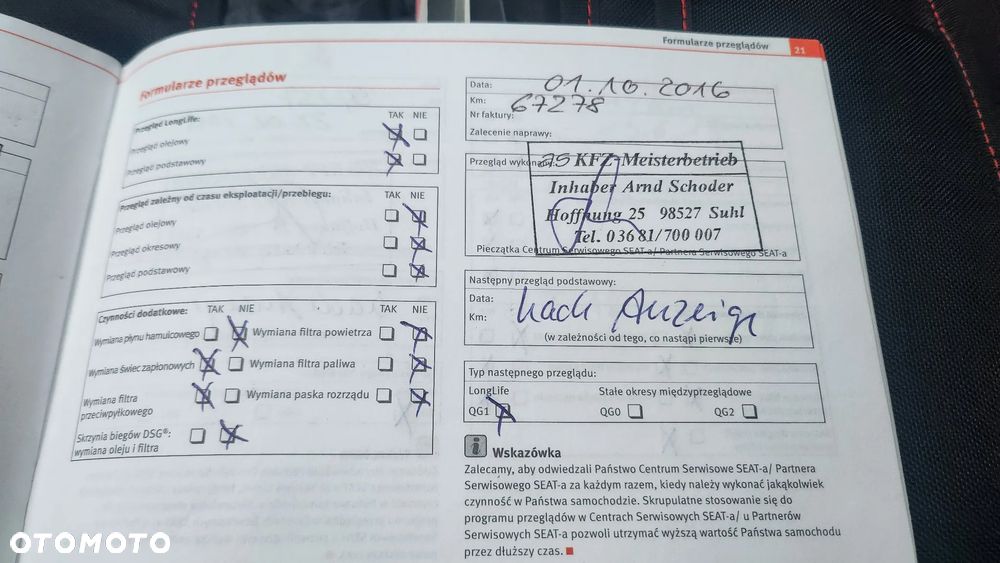 Formularze przeglądów 21
Formularze przeglądów
Przegląd LongLife: TAK NIE
Przegląd olejowy
Przegląd podstawowy
Przegląd zależny od czasu eksploatacji/przebiegu: TAK NIE
Przegląd olejowy
Przegląd okresowy
Przegląd podstawowy
Czynności dodatkowe: TAK NIE TAK NIE
Wymiana płynu hamulcowego Wymiana filtra powietrza
Wymiana świec zapłonowych Wymiana filtra paliwa
Wymiana filtra przeciwpyłkowego Wymiana paska rozrządu
Skrzynia biegów DSG®:
wymiana oleju i filtra
Data: 01.10.2016
Km: 67278
Nr faktury:
Zalecenie naprawy:
Przegląd wykonany:
KFZ-Meisterbetrieb
Inhaber Arnd Schoder
Hoffnung 25 98527 Suhl
Tel. 03681/700 007
Pieczątka Centrum Serwisowego SEAT-a/ Partnera Serwisowego SEAT-a
Następny przegląd podstawowy:
Data: nach Anzeige
Km:
(w zależności od tego, co nastąpi pierwsze)
Typ następnego przeglądu:
LongLife Stałe okresy międzyprzeglądowe
QG1 QG0 QG2
Wskazówka
Zalecamy, aby odwiedzali Państwo Centrum Serwisowe SEAT-a/ Partnera
Serwisowego SEAT-a za każdym razem, kiedy należy wykonać jakąkolwiek
czynność w Państwa samochodzie. Skrupulatne stosowanie się do
programu przeglądów w Centrach Serwisowych SEAT-a/ u Partnerów
Serwisowych SEAT-a pozwoli utrzymać wyższą wartość Państwa samochodu
przez dłuższy czas.
OTOMOTO